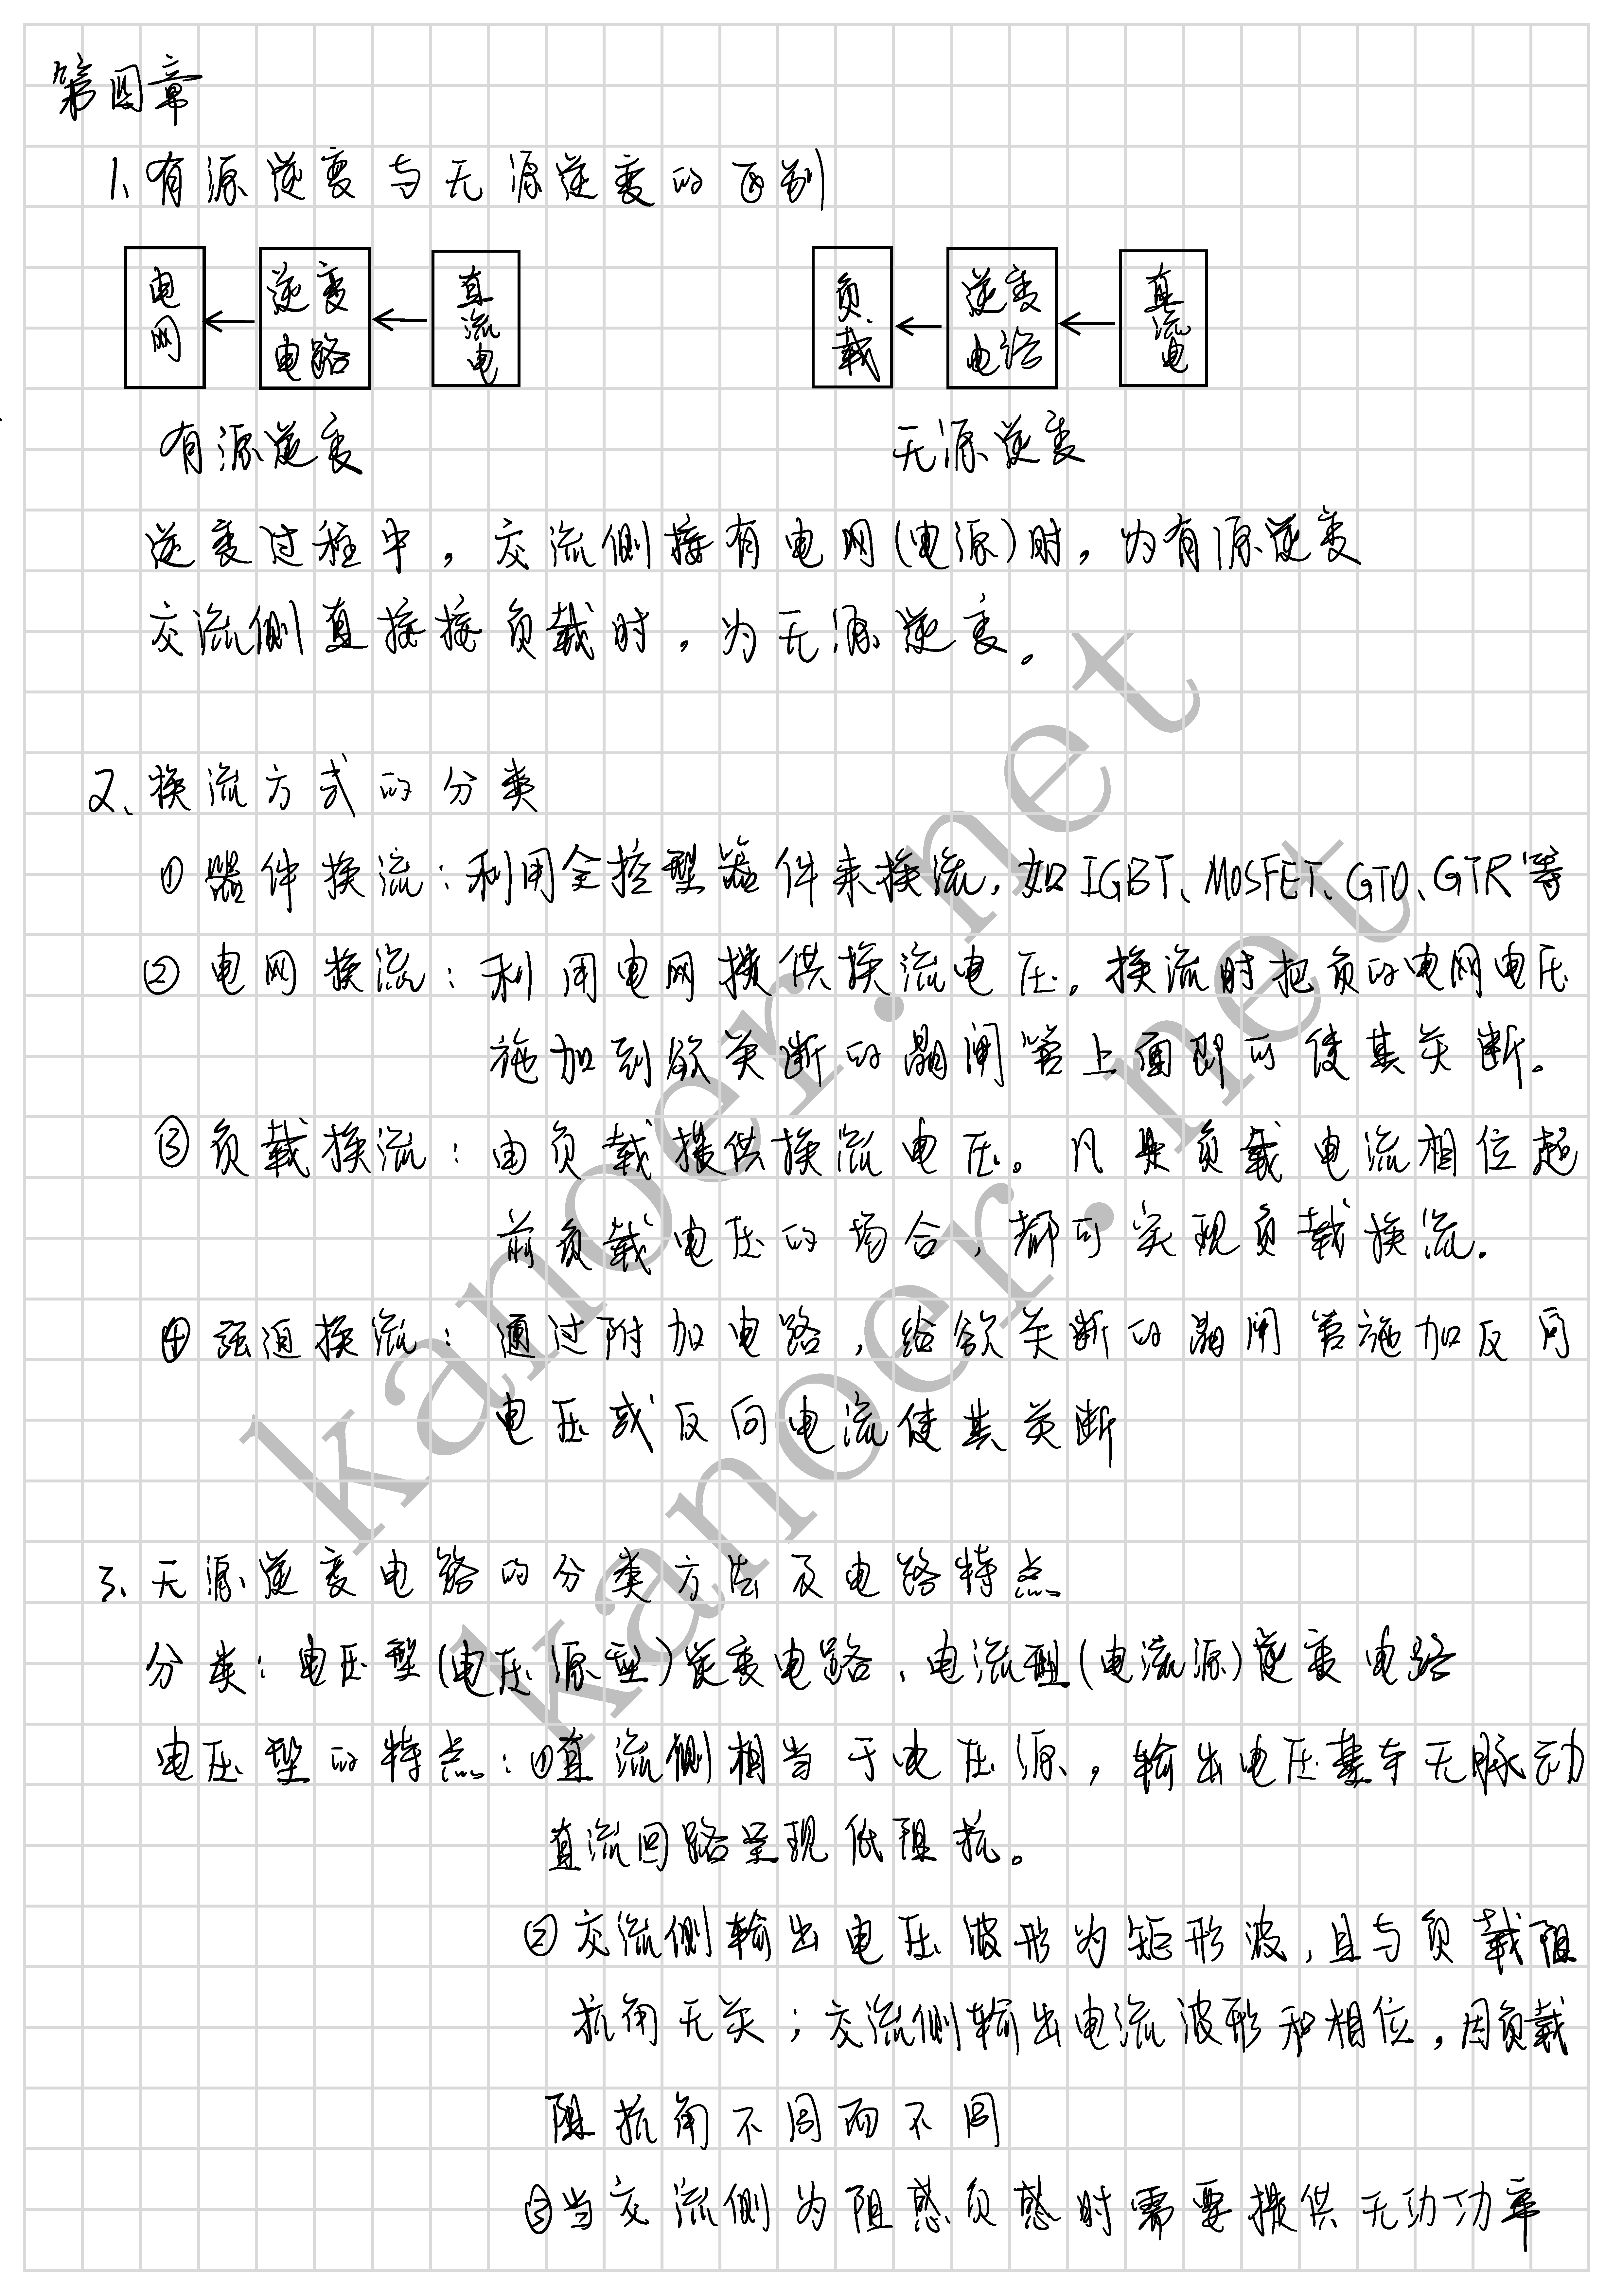 第四章
1、有源逆变与无源逆变的区别
电网 ← 逆变电路 ← 直流电
负载 ← 逆变电路 ← 直流电
有源逆变 无源逆变
逆变过程中，交流侧接有电网(电源)时，为有源逆变
交流侧直接接负载时，为无源逆变。
2、换流方式的分类
①器件换流：利用全控型器件来换流，如IGBT、MOSFET、GTO、GTR等
②电网换流：利用电网提供换流电压，换流时把负的电网电压
施加到欲关断的晶闸管上面即可使其关断。
③负载换流：由负载提供换流电压。凡是负载电流相位超
前负载电压的场合，都可实现负载换流.
④强迫换流：通过附加电路，给欲关断的晶闸管施加反向
电压或反向电流使其关断
3、无源逆变电路的分类方法及电路特点
分类：电压型(电压源型)逆变电路、电流型(电流源)逆变电路
电压型的特点：①直流侧相当于电压源，输出电压基本无脉动
直流回路呈现低阻抗。
②交流侧输出电压波形为矩形波，且与负载阻
抗角无关；交流侧输出电流波形和相位，因负载
阻抗角不同而不同
③当交流侧为阻感负感时需要提供无功功率
kanoer.net
kanoer.net